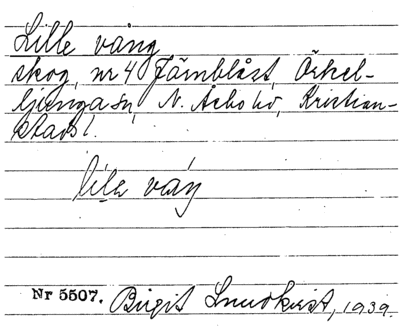 Lille vång
skog, nr 4 Järnblåst, Örkel-
ljunga sn, N. Åsbo hd, Kristian-
stads l.
lila våŋ
Nr 5507. Birgit Lundkvist, 1939.